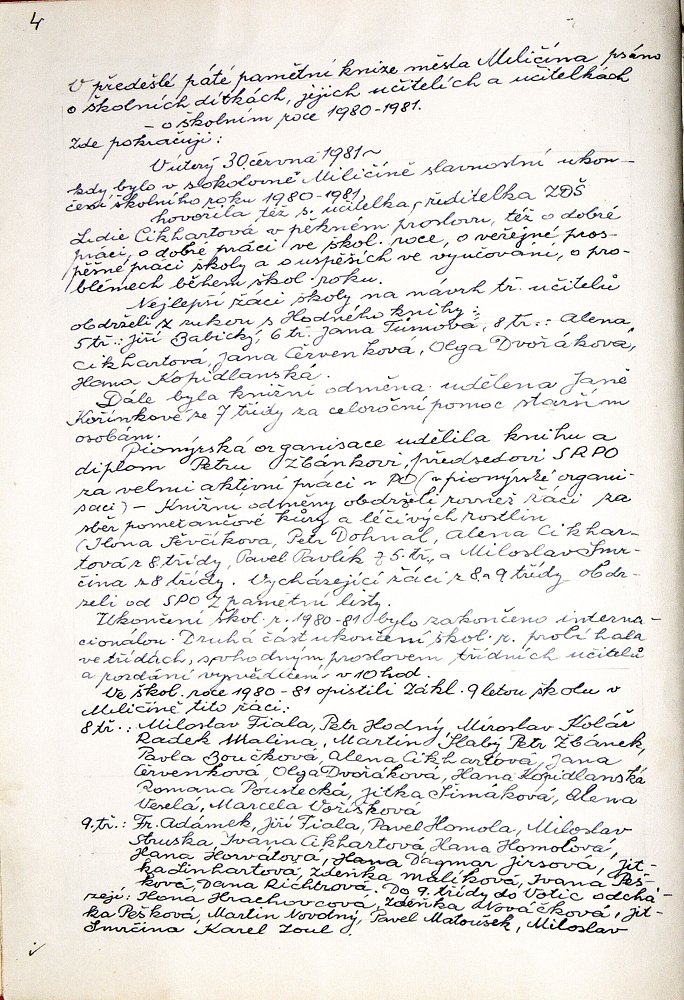 4
V předešlé páté pamětní knize města Miličína, psáno
o školních dítkách, jejich učitelích a učitelkách
– o školním roce 1980-1981.
Zde pokračuji:
V úterý 30 června 1981 ~
kdy bylo v sokolovně Miličíně slavnostní ukon–
čení školního roku 1980-1981,
hovořila též s. učitelka, ředitelka ZDŠ
Lidie Cikhartová v pěkném proslovu, též o dobré
práci, o dobré práci ve škol. roce, o veřejné pros-
pěšné práci školy a o úspěších ve vyučování, o pro-
blémech během škol. roku.
Nejlepší žáci školy na návrh tř. učitelů
obdrželi z rukou s. Hodného knihy:
5 tř.: Jiří Babický, 6 tř. Jana Tůmová, 8 tř.: Alena
Cikhartová, Jana Červenková, Olga Dvořáková,
Hana Kopidlanská.
Dále byla knižní odměna udělena Janě
Kořínkové ze 7 třídy za celoroční pomoc starším
osobám.
Pionýrská organisace udělila knihu a
diplom Petru Žbánkovi, předsedovi SRPO
za velmi aktivní práci v PO (v pionýrské organi-
saci) – Knižní odměny obdrželi rovněž žáci za
sběr pomerančové kůry a léčivých rostlin
(Ilona Ševčíková, Petr Dohnal, Alena Cikhar-
tová z 8 třídy, Pavel Pavlík z 5. tř., a Miloslav Smr-
čina z 8 třídy. Vycházející žáci z 8 a 9 třídy obdr-
želi od SPOZ pamětní listy.
Ukončení škol. r. 1980-81 bylo zakončeno interna–
cionálou. Druhá část ukončení škol. r. probíhala
ve třídách, s vhodným proslovem třídních učitelů
a rozdání vysvědčení v 10 hod.
Ve škol. roce 1980-81 opistili Zákl. 9letou školu v
Miličíně tito žáci:
8 tř.: Miloslav Fiala, Petr Hodný, Miroslav Kolář
Radek Malina, Martin Slabý Petr Žbánek,
Pavla Boučková, Alena Cikhartová, Jana
Červenková, Olga Dvořáková, Hana Kopidlanská
Romana Poustecká, Jitka Šimáková, Alena
Veselá, Marcela Voříšková
9. tř.: Fr. Adámek, Jiří Fiala, Pavel Homola, Miloslav
Struska, Ivana Cikhartová, Hana Homolová,
Hana Horvátová, Hana Dagmar Jirsová, Jit-
ka Linhartová, Zdeňka Malíková, Ivana Peš-
ková, Dana Richtrová. Do 9. třídy do Votic odchá-
zejí: Ilona Hrachovcová, Zdeňka Nováčková, Jit-
ka Pešková, Martin Novotný, Pavel Matoušek, Miloslav
Smrčina Karel Zoul.